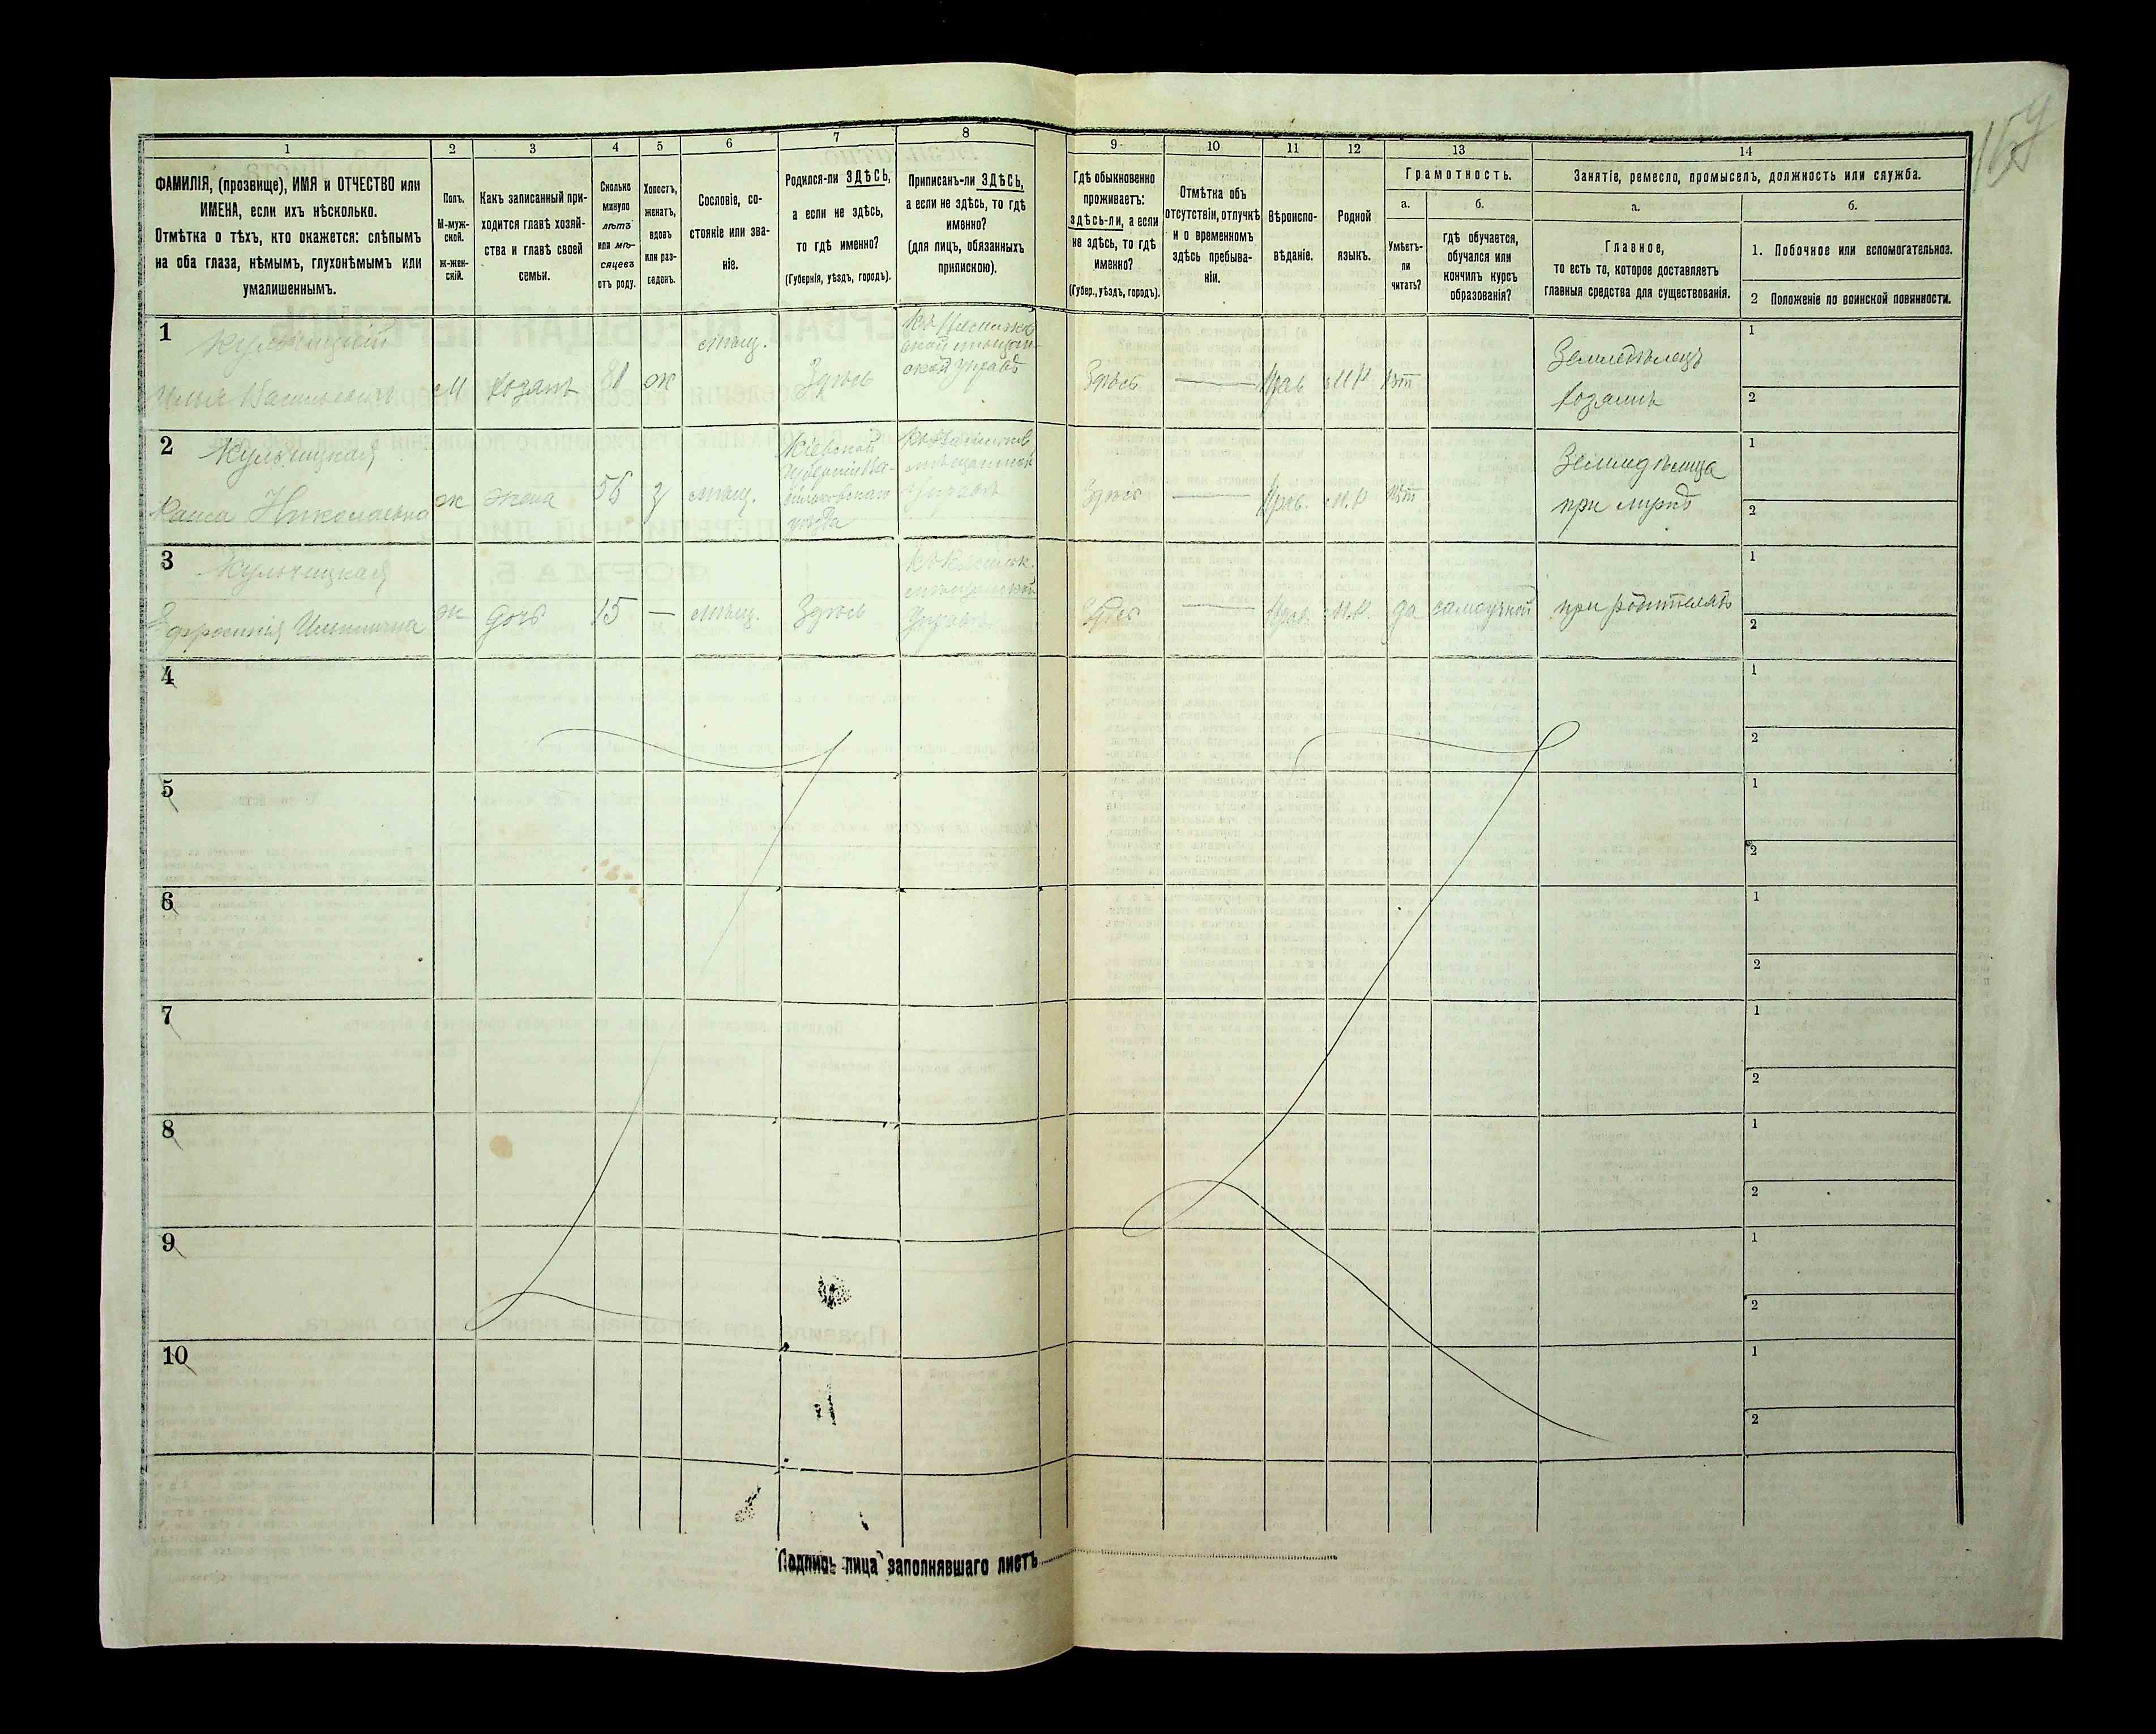 159
1
2
3
4
5
6
7
8
9
10
11
12
13
14
ФАМИЛІЯ, (прозвище), ИМЯ и ОТЧЕСТВО или
ИМЕНА, если ихъ нѣсколько.
Отмѣтка о тѣхъ, кто окажется: слѣпымъ
на оба глаза, нѣмымъ, глухонѣмымъ или
умалишеннымъ.
Полъ.
М-муж-
ской.
ж-жен-
скій.
Какъ записанный при-
ходится главѣ хозяй-
ства и главѣ своей
семьи.
Сколько
минуло
лѣтъ
или мѣ-
сяцевъ
отъ роду.
Холостъ,
женатъ,
вдовъ
или раз-
веденъ.
Сословіе, со-
стояніе или зва-
ніе.
Родился-ли ЗДѢСЬ,
а если не здѣсь,
то гдѣ именно?
(Губернія, уѣздъ, городъ).
Приписанъ-ли ЗДѢСЬ,
а если не здѣсь, то гдѣ
именно?
(для лицъ, обязанныхъ
припискою).
Гдѣ обыкновенно
проживаетъ:
здѣсь-ли, а если
не здѣсь, то гдѣ
именно?
(Губер., уѣздъ, городъ).
Отмѣтка объ
отсутствіи, отлучкѣ
и о временномъ
здѣсь пребыва-
ніи.
Вѣроиспо-
вѣданіе.
Родной
языкъ.
Грамотность.
а.
Умѣетъ-
ли
читать?
б.
гдѣ обучается,
обучался или
кончилъ курсъ
образованія?
Занятіе, ремесло, промыселъ, должность или служба.
а.
Главное,
то есть то, которое доставляетъ
главныя средства для существованія.
б.
1. Побочное или вспомогательное.
2 Положеніе по воинской повинности.
1
Кульчицкій
Илья Васильевичъ
м
хозяинъ
81
ж
мѣщ.
Здѣсь
мѣщан-
ской управѣ
Здѣсь
Прав
М.Р
нѣт
Земледѣлецъ
хозяинъ
1
2
2
Кульчицкая
Раиса Николаевна
ж
жена
56
з
мѣщ.
Кіевской
губерніи Ва-
сильковскаго
уѣзда
мѣщанской
Управѣ
Здѣсь
Прав.
М.Р
нѣт
Земледѣлица
при мужѣ
1
2
3
Кульчицкая
Ефросинія Ильинична
ж
дочь
15
—
мѣщ.
Здѣсь
мѣщанской
Управѣ
Здѣсь
Прав.
М.Р.
да
самоучкой
при родителяхъ
1
2
4
1
2
5
1
2
6
1
2
7
1
2
8
1
2
9
1
2
10
1
2
Подпись лица заполнявшаго листъ